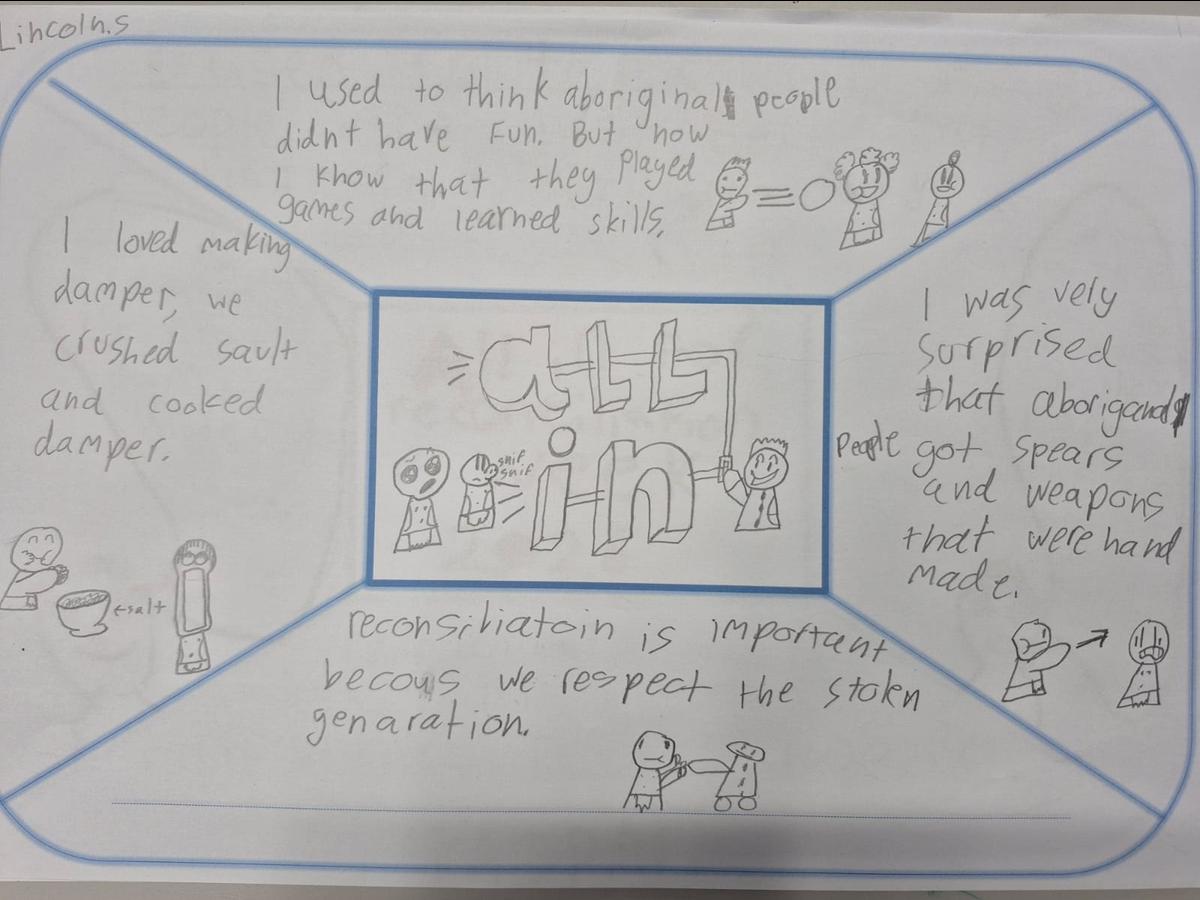 Lincoln.s
I used to think aboriginal people
didnt have fun. But now
I know that they played
games and learned skills.
I loved making
damper, we
crushed sault
and cooked
damper.
←salt
all
in
snif
snif
I was very
surprised
that aboriganal
people got spears
and weapons
that were hand
made.
reconsiliatoin is important
becous we respect the stolen
genaration.